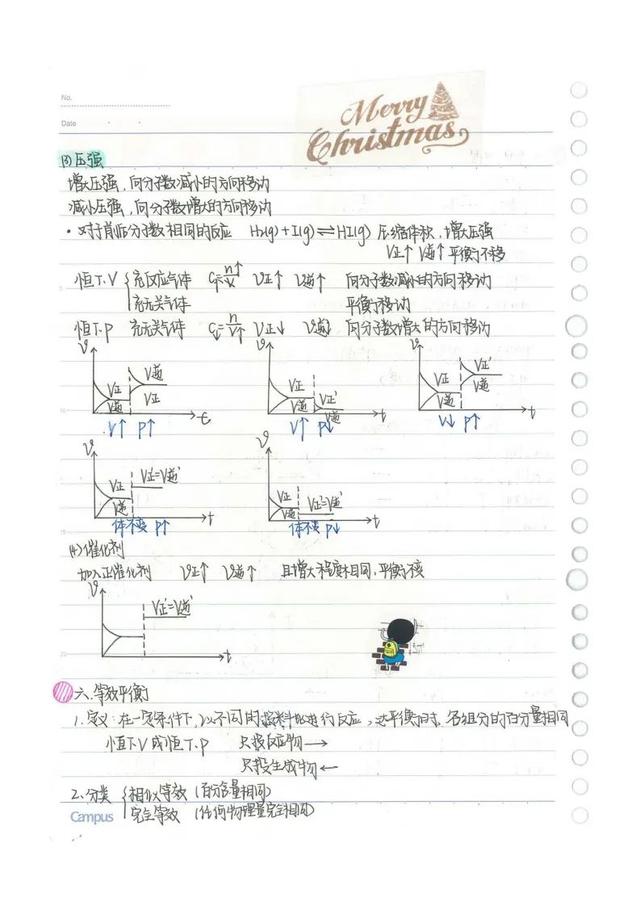 No.
Merry
Christmas
Date
(3)压强
增大压强,向分子数减小的方向移动
减小压强,向分子数增大的方向移动
·对于前后分子数相同的反应 H₂(g)+I₂(g)⇌HI(g) 压缩体积,增大压强
V正↑ V逆↑ 平衡不移
恒T.V { 充反应气体 C=n↑/V V正↑ V逆↑ 向分子数减小的方向移动
充无关气体 平衡不移动
恒T.P 充无关气体 C↓=n/V↑ V正↓ V逆↓ 向分子数增大的方向移动
v v v
V正 V逆 V逆 V正 t
V正 V逆 V正' V逆 t
V正 V逆 V正' V逆 t
V↑ P↑ V↑ P↓ V↓ P↑
v v
V正 V逆 V正'=V逆' t
V正 V逆 V正'=V逆' t
体不变 P↑ 体不变 P↓
(4)催化剂
加入正催化剂 V正↑ V逆↑ 且增大程度相同,平衡不移
v
V正'=V逆'
t
六.等效平衡
1.定义:在一定条件下,以不同的投料进行反应,达平衡时,各组分的百分量相同
恒T.V或恒T.P 只投反应物→
只投生成物←
2.分类 { 相似等效(百分含量相同)
完全等效(任何物理量完全相同)
Campus